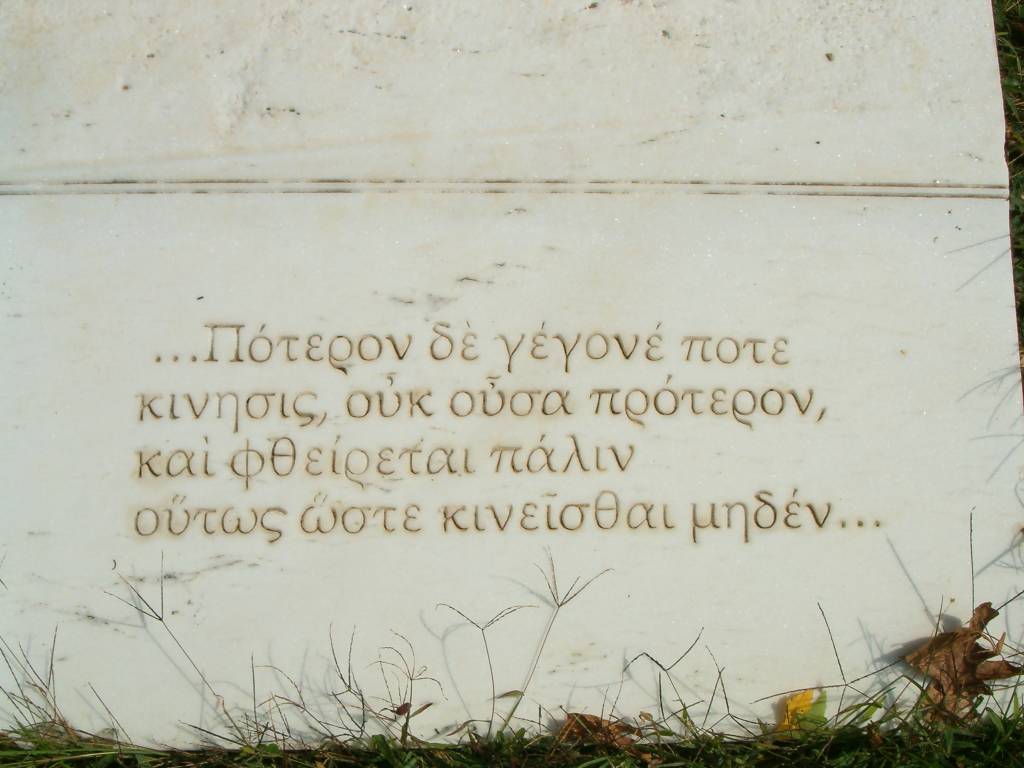 ...Πότερον δὲ γέγονέ ποτε
κινησις, οὖκ οὖσα πρότερον,
καὶ φθείρεται πάλιν
οὕτως ὥστε κινεῖσθαι μηδέν...